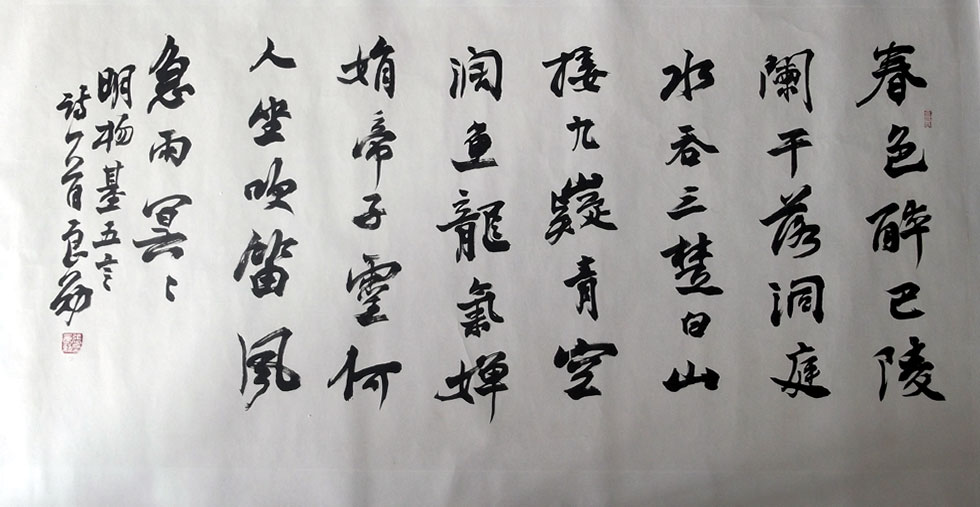 春色醉巴陵
闌干落洞庭
水吞三楚白山
接九嶷青空
濶魚龍氣嬋
娟帝子靈何
人坐吹笛風
急雨冥〻
明杨基五言
詩一首良